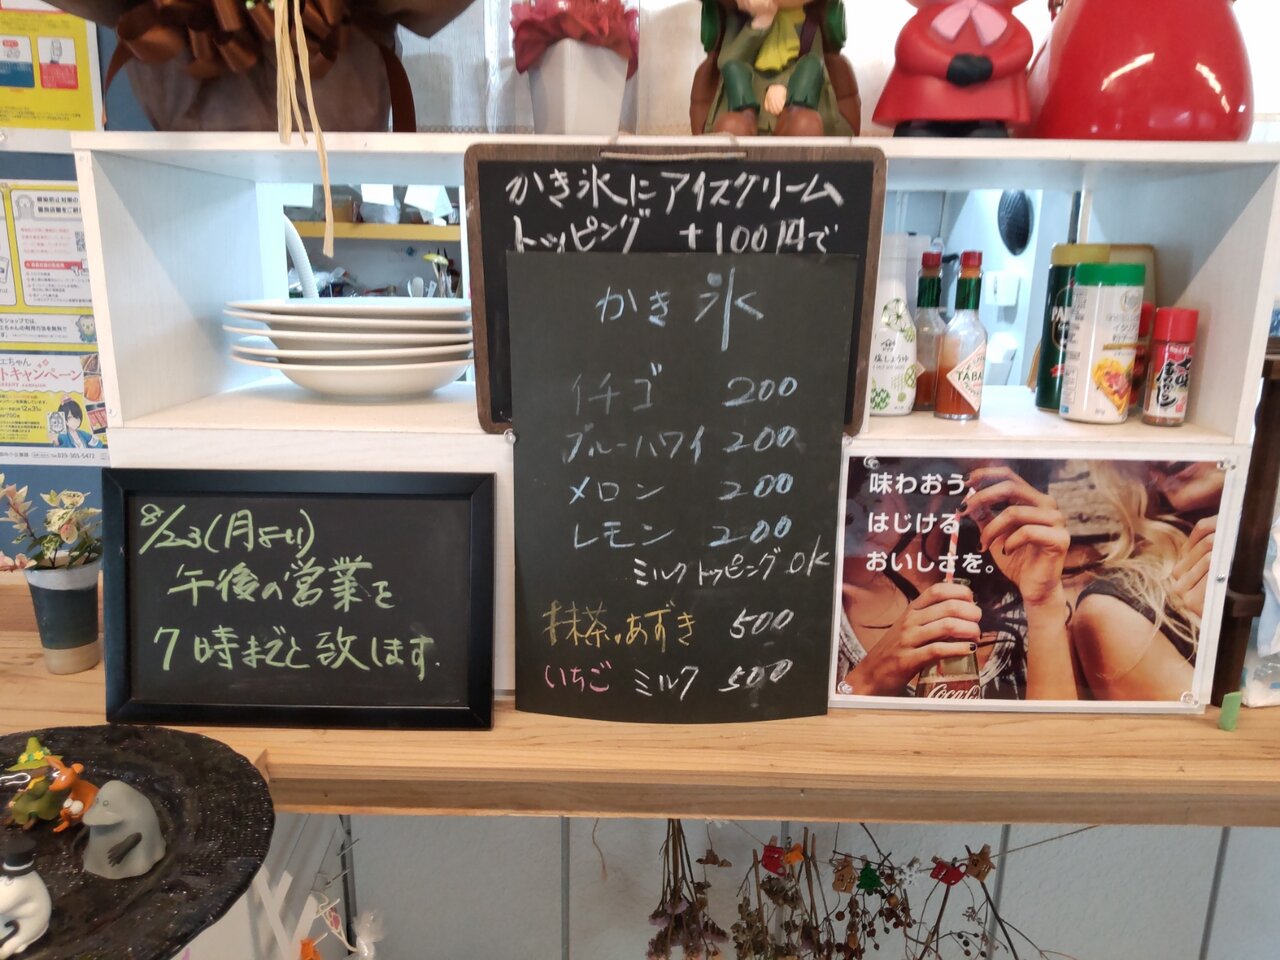 かき氷にアイスクリーム
トッピング +100円で
かき氷
イチゴ 200
ブルーハワイ 200
メロン 200
レモン 200
ミルクトッピングOK
抹茶.あずき 500
いちごミルク 500
8/23(月より)
午後の営業を
7時までと致します.
味わおう、
はじける
おいしさを。
Coca-Co
塩しょうゆ
TABA
トキャンペーン